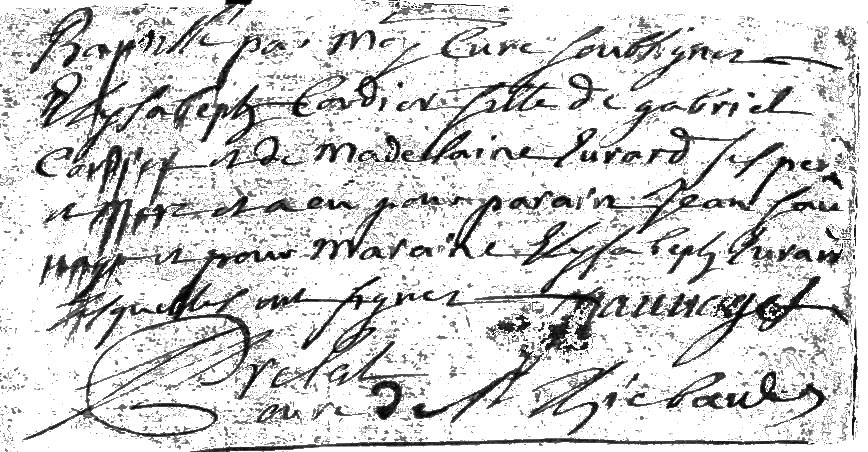 Baptisée par Moy Cure soubsigner
Elysabeph Cordier fille de gabriel
Cordier et de Madellaine Evrard ses pere
et mere et a eu pour parain Jean Sau
et pour Maraine Elysabeph Evrard
lesquelles ont signer
Prelat
cure de St Thiebault